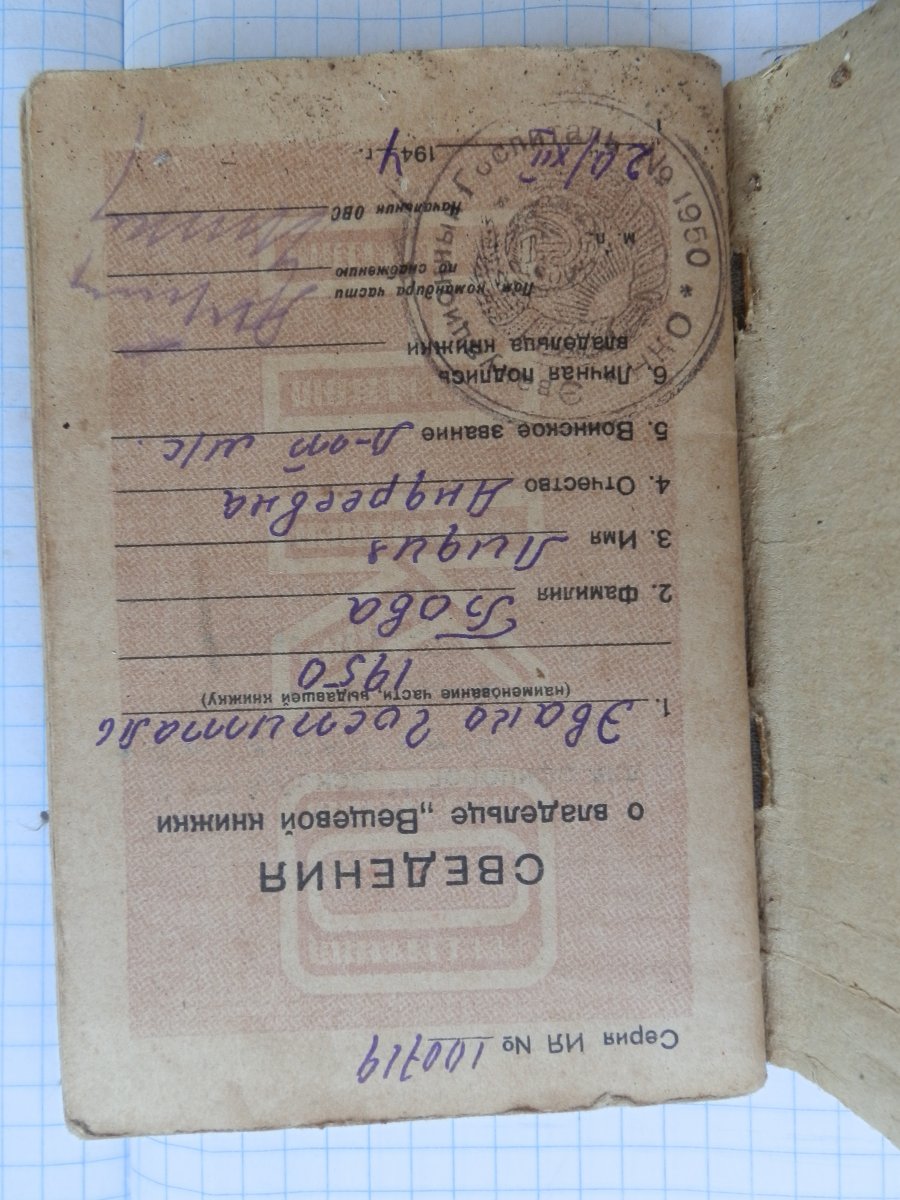 Серия ИЯ № 100719
СВЕДЕНИЯ
о владельце „Вещевой книжки
1. Эвако госпиталь
(наименование части, выдавшей книжку)
1950
2. Фамилия Бова
3. Имя Лидия
4. Отчество Андреевна
5. Воинское звание л-т м/с.
6. Личная подпись
владельца книжки
Пом. командира части
по снабжению
Начальник ОВС
м. п.
20/XII 1944 г.
Эвакуационный Госпиталь № 1950